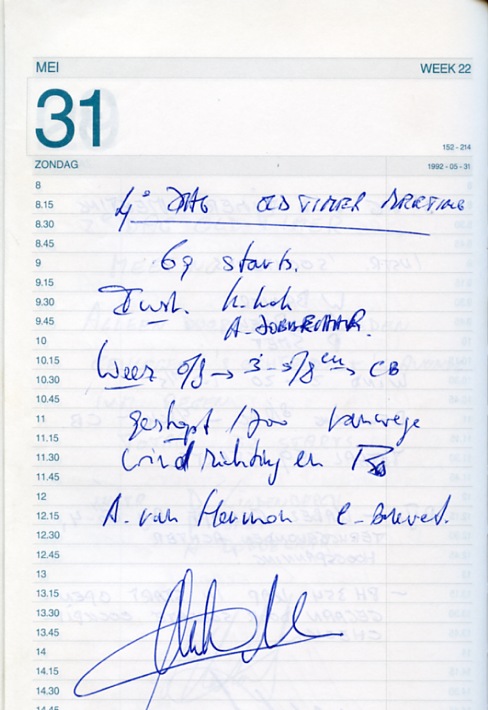 MEI WEEK 22
31
152 - 214
ZONDAG 1992 - 05 - 31
8
8.15 4e DAG OLDTIMER MEETING
8.30
8.45
9 69 starts.
9.15
9.30 Inst.
9.45 A.
10
10.15 Weer 0/8 → 3-5/8 CB
10.30
10.45
11 gestopt 1700 vanwege
11.15
11.30 windrichting en
11.45
12
12.15 A. van C-Brevet.
12.30
12.45
13
13.15
13.30
13.45
14
14.15
14.30
14.45